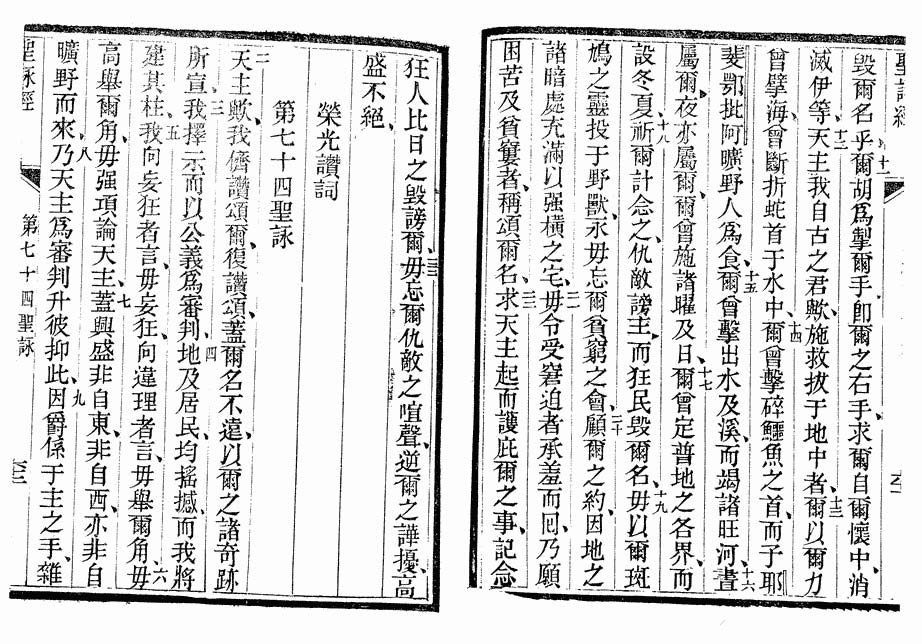 聖詠經
毀爾名乎十一爾胡爲掣爾手卽爾之右手求爾自爾懷中消
滅伊等十二天主我自古之君歟施救拔于地中者十三爾以爾力
曾擘海曾斷折蛇首于水中十四爾曾擊碎鱷魚之首而予耶
斐鄂批阿曠野人爲食十五爾曾擊出水及溪而竭諸旺河十六晝
屬爾夜亦屬爾爾曾施諸曜及日十七爾曾定普地之各界而
設冬夏十八祈爾計念之仇敵謗主而狂民毀爾名十九毋以爾斑
鳩之靈投于野獸永毋忘爾貧窮之會二十顧爾之約因地之
諸暗處充滿以强橫之宅二一毋令受窘迫者承羞而回乃願
困苦及貧窶者稱頌爾名二二求天主起而護庇爾之事記念
狂人比日之毀謗爾二三毋忘爾仇敵之喧聲逆爾之譁擾高
盛不絕
榮光讚詞
第七十四聖詠
二天主歟我儕讚頌爾復讚頌蓋爾名不遠以爾之諸奇跡
所宣三我擇示而以公義爲審判四地及居民均搖撼而我將
建其柱五我向妄狂者言毋妄狂向違理者言毋舉爾角六毋
高舉爾角毋强項論天主七蓋興盛非自東非自西亦非自
曠野而來八乃天主爲審判升彼抑此九因爵係于主之手雜
聖詠經
第七十四聖詠